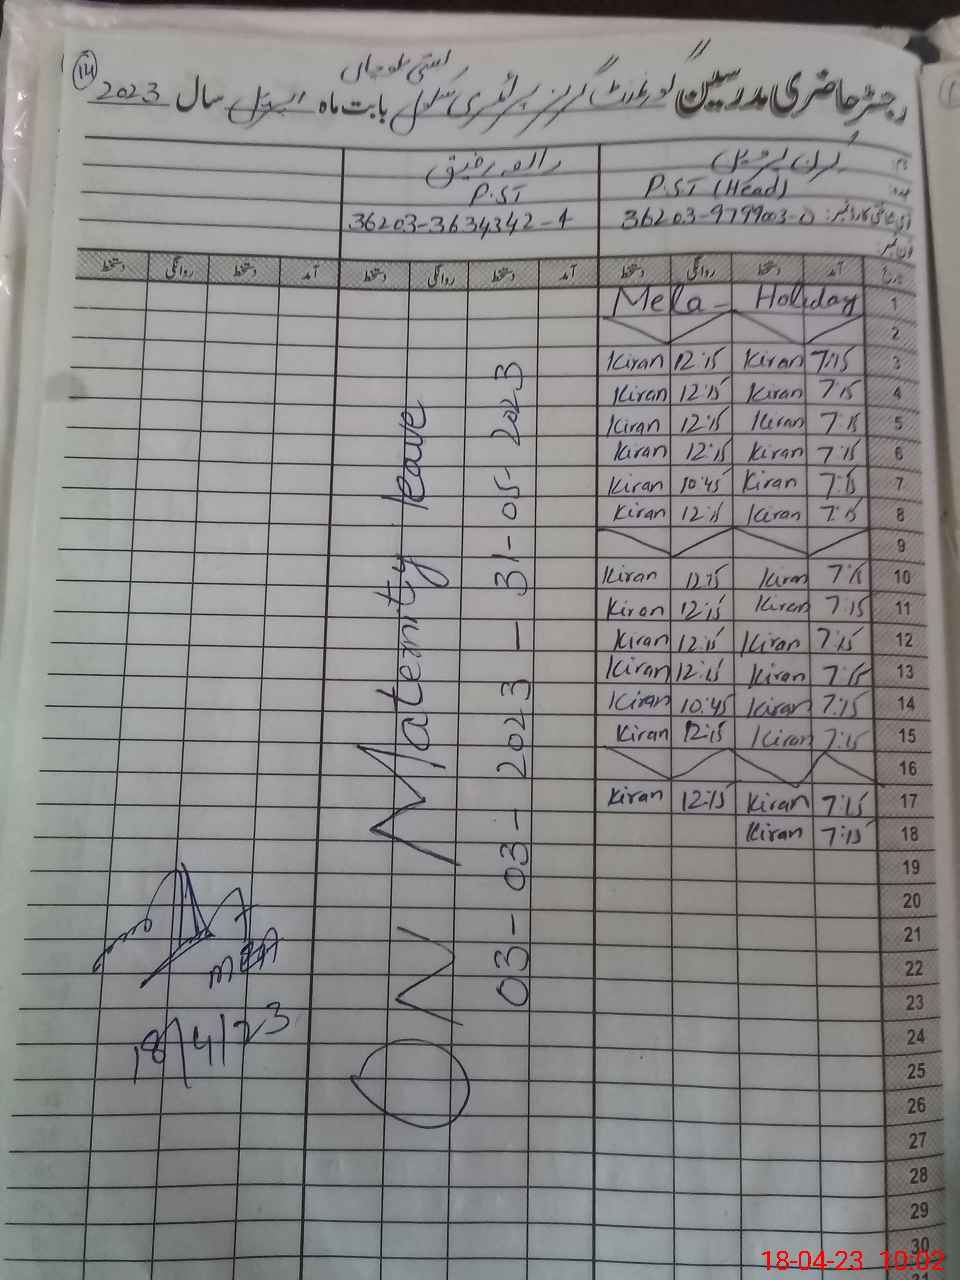 14
بستی بلوچاں
رجسٹر حاضری مدرسین گورنمنٹ گرلز پرائمری سکول بابت ماہ اپریل سال 2023
نام: کرن پروین رافعہ رفیق
عہدہ: P.ST (Head) P.ST
شناختی کارڈ نمبر: 36203-3634342-4
فون نمبر:
تاریخ آمد دستخط روانگی دستخط آمد دستخط روانگی دستخط آمد دستخط روانگی دستخط
Mela - Holiday 1
2
Kiran 12:15 Kiran 7:15 3
Kiran 12:15 Kiran 7:15 4
Kiran 12:15 Kiran 7:15 5
Kiran 12:15 Kiran 7:15 6
Kiran 10:45 Kiran 7:15 7
Kiran 12:15 Kiran 7:15 8
9
Kiran 12:15 Kiran 7:15 10
Kiran 12:15 Kiran 7:15 11
Kiran 12:15 Kiran 7:15 12
Kiran 12:15 Kiran 7:15 13
Kiran 10:45 Kiran 7:15 14
Kiran 12:15 Kiran 7:15 15
16
Kiran 12:15 Kiran 7:15 17
Kiran 7:15 18
19
20
21
22
23
24
25
26
27
28
29
30
31
ON Maternity leave
03-03-2023 - 31-05-2023
MEA
18/4/23
18-04-23 10:02